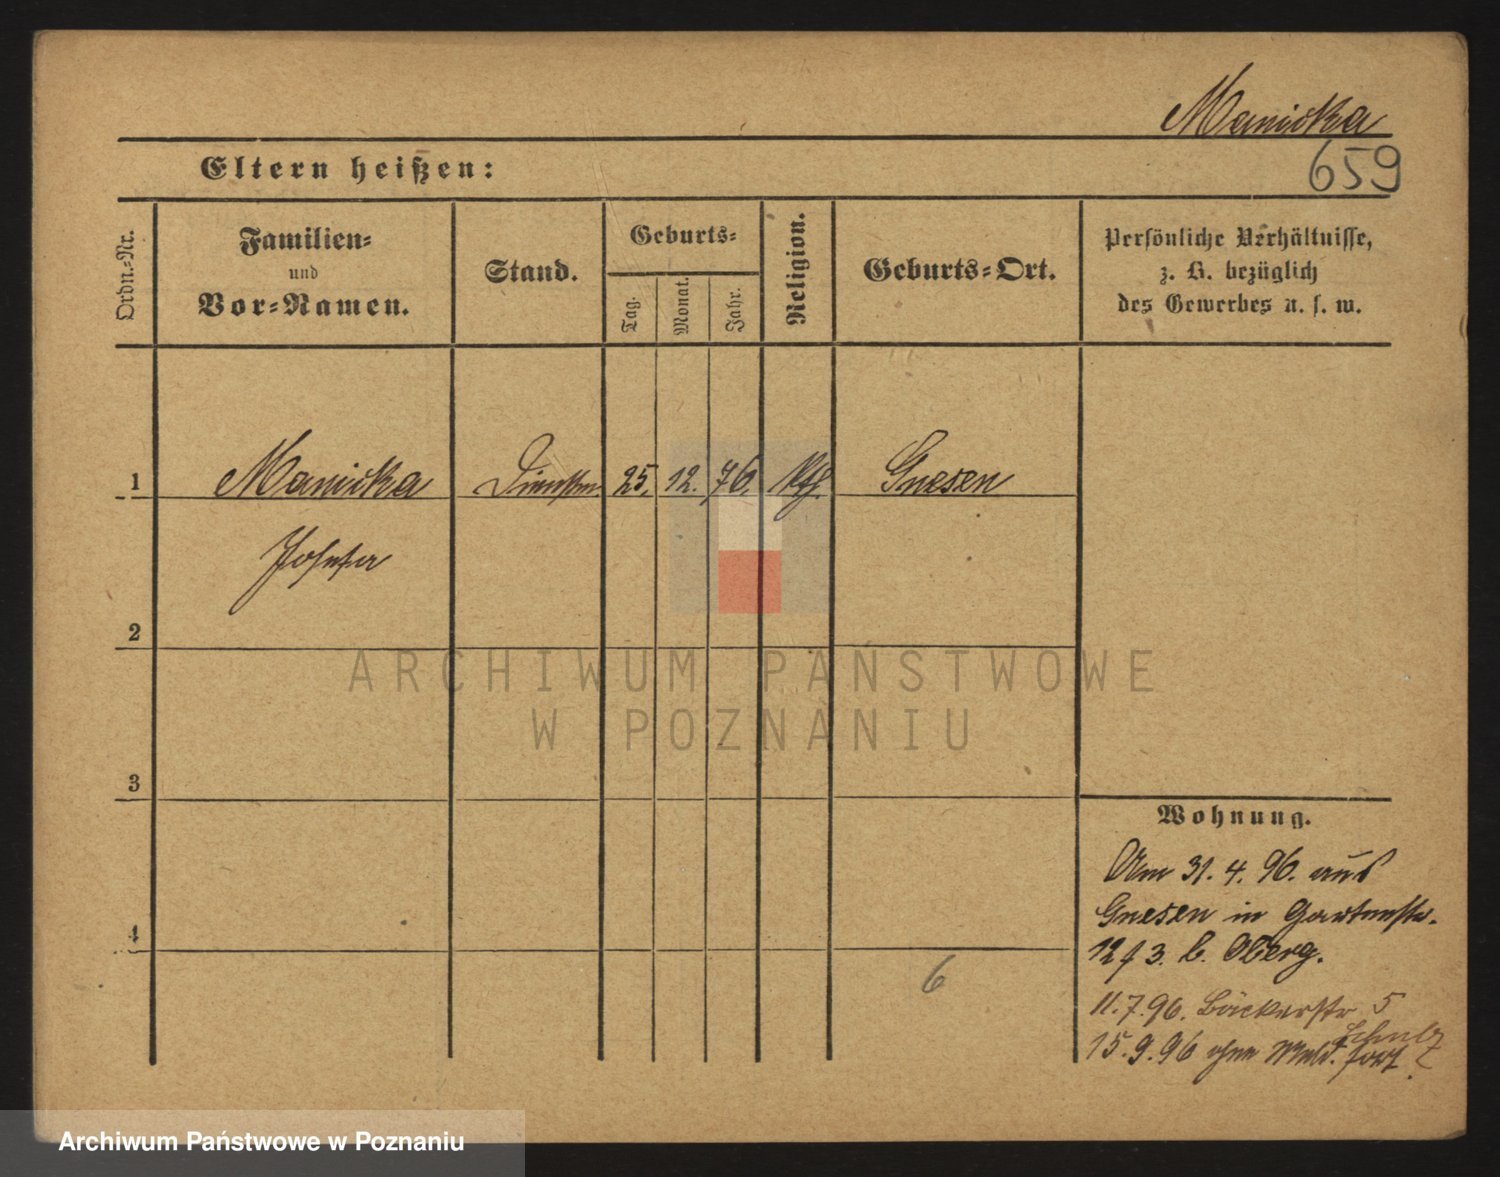 Manicka
659
Eltern heißen:
Ordn.-Nr.
Familien-
und
Vor-Namen.
Stand.
Geburts-
Tag.
Monat.
Jahr.
Religion.
Geburts-Ort.
Persönliche Verhältnisse,
z. B. bezüglich
des Gewerbes u. s. w.
1 Manicka 25. 12. 76. Gnesen
Josefa
2
3
4
6
Wohnung.
Am 31. 4. 96. aus
Gnesen in Gartenstr.
12 f 3. b. Oberg.
11.7.96. Bäckerstr 5
Schulz
15.9.96 ohne Meld. fort.
ARCHIWUM PAŃSTWOWE
W POZNANIU
Archiwum Państwowe w Poznaniu